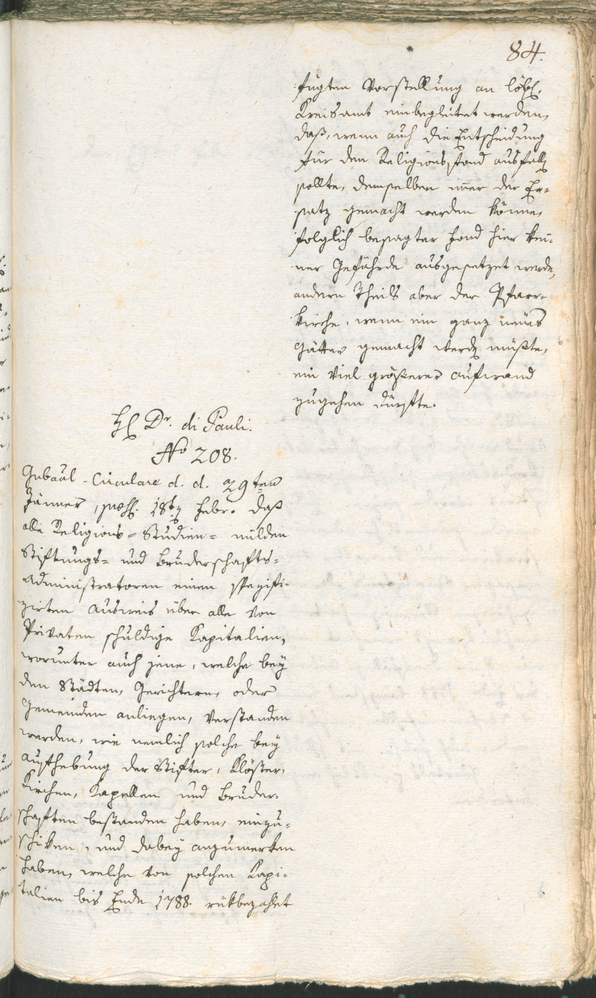 84.
fugten Vorstellung an löbl.
Kreisamt einbegleitet werden,
daß, wenn auch die Entscheidung
für den Religionsfond ausfall
sollte, demselben immer der Er-
satz gemacht werden könne,
folglich besagter Fond hier kei-
ner Gefährde ausgesetzet werde,
andern Theils aber der Pfarr-
kirche, wenn ein ganz neues
Gätter gemacht werd müßte,
ein viel größerer Aufwand
zugehen dürfte.
H Dr. di Pauli.
No 208.
Gubaal-Circulare d. d. 29ten
Jänner, 18t Febr. daß
alle Religions- Studien- milden
Stiftungs- und Bruderschafts-
Administratoren einen spezifi-
zirten Ausweis über alle von
Privaten schuldige Kapitalien,
worunter auch jene, welche bey
den Städten, Gerichtern, oder
Gemeinden anliegen, verstanden
werden, wie nemlich solche bey
Aufhebung der Stifter, Klöster,
Kirchen, Kapellen und Bruder-
schaften bestanden haben, einzu-
schicken, und dabey anzumerken
haben, welche von solchen Kapi-
talien bis Ende 1788 rükbezahlt